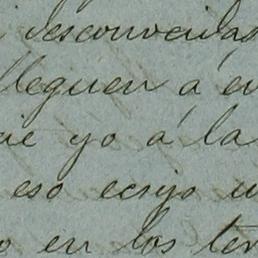 desconocidas
lleguen á en
ie yo á la
eso ecsijo u
o en los ter